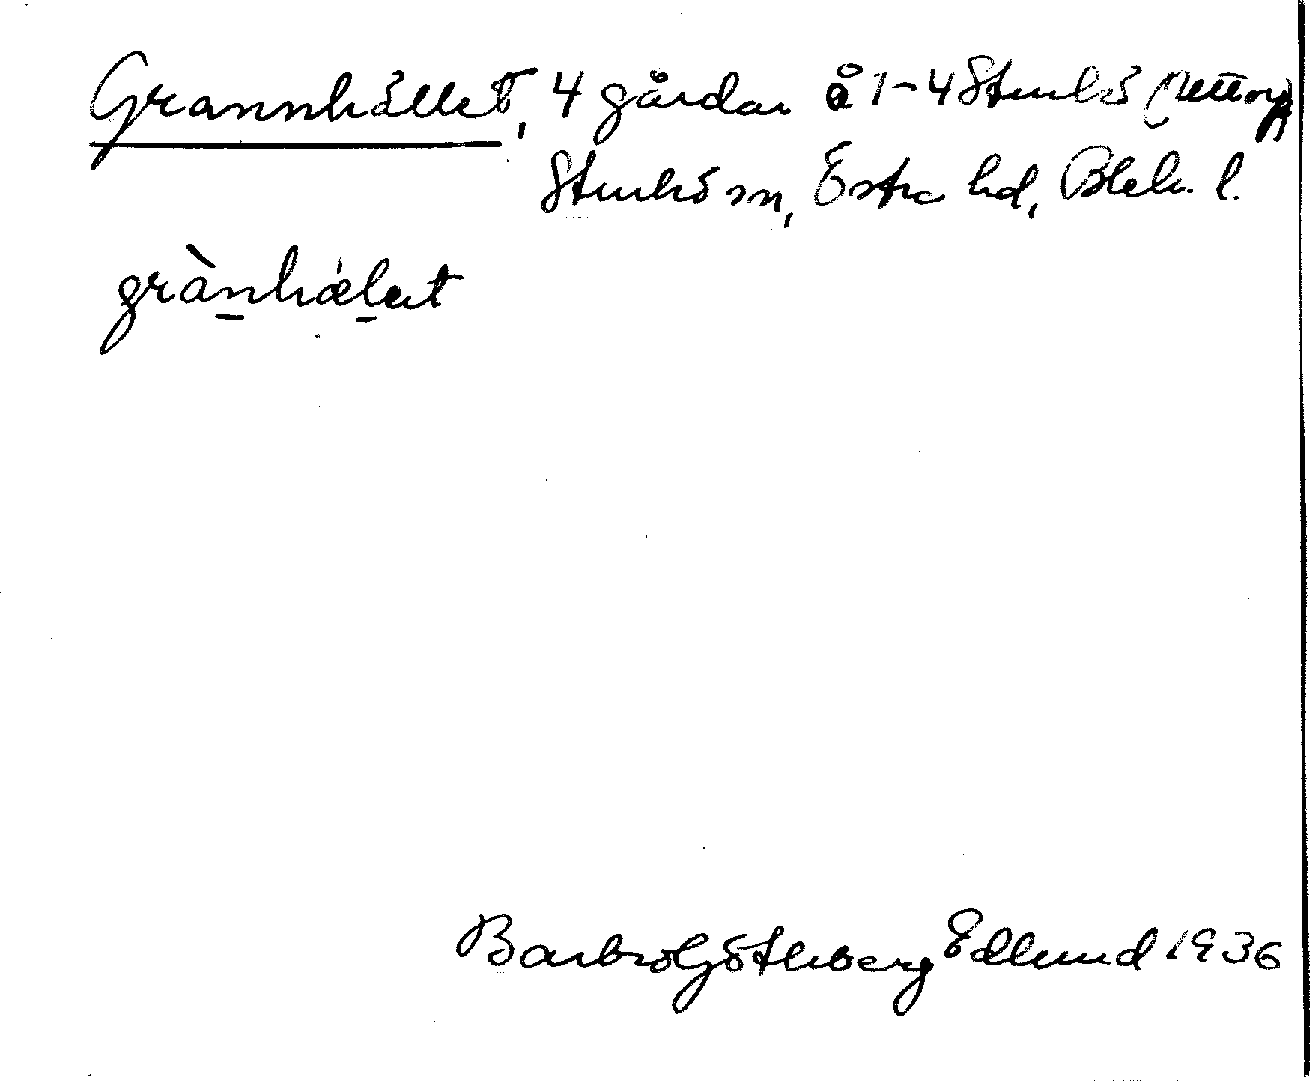 Grannhället, 4 gårdar å 1-4 Sturkö (Uttorp)
Sturkö sn, Östra hd, Blek. l.
grànhælet
Barbro Götheberg Edlund 1936